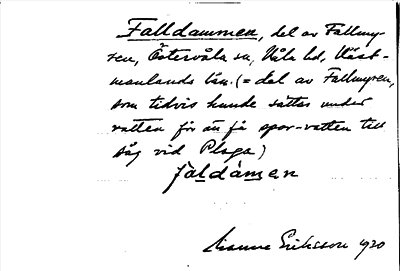 Falldammen, del av Fallmy-
ren, Östervåla sn, Våla hd, Väst-
manlands län. (= del av Fallmyren,
som tidvis kunde sättas under
vatten för att få spar-vatten till
såg vid Ploga)
faldamen
Eriksson 1920